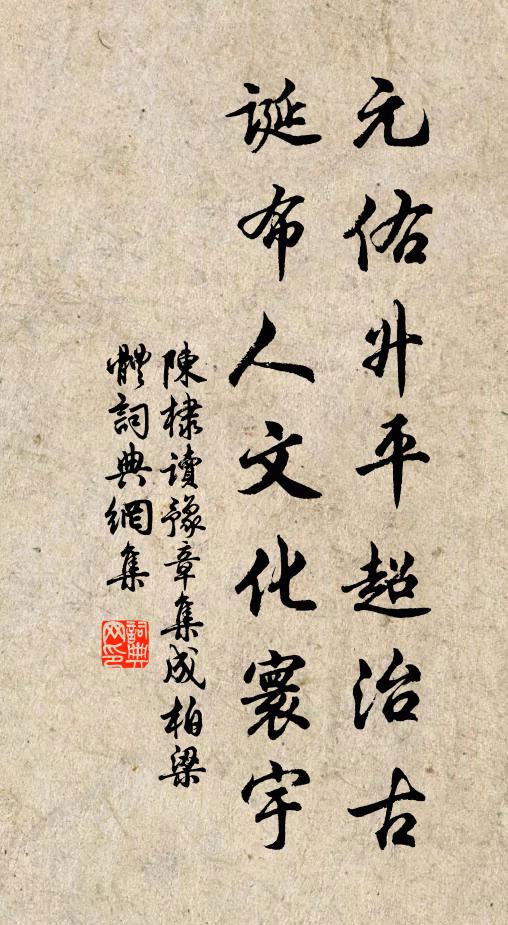 元佑升平超治古
诞布人文化寰宇
陳棣讀豫章集成柏梁
體詞典網集
詞典
网印